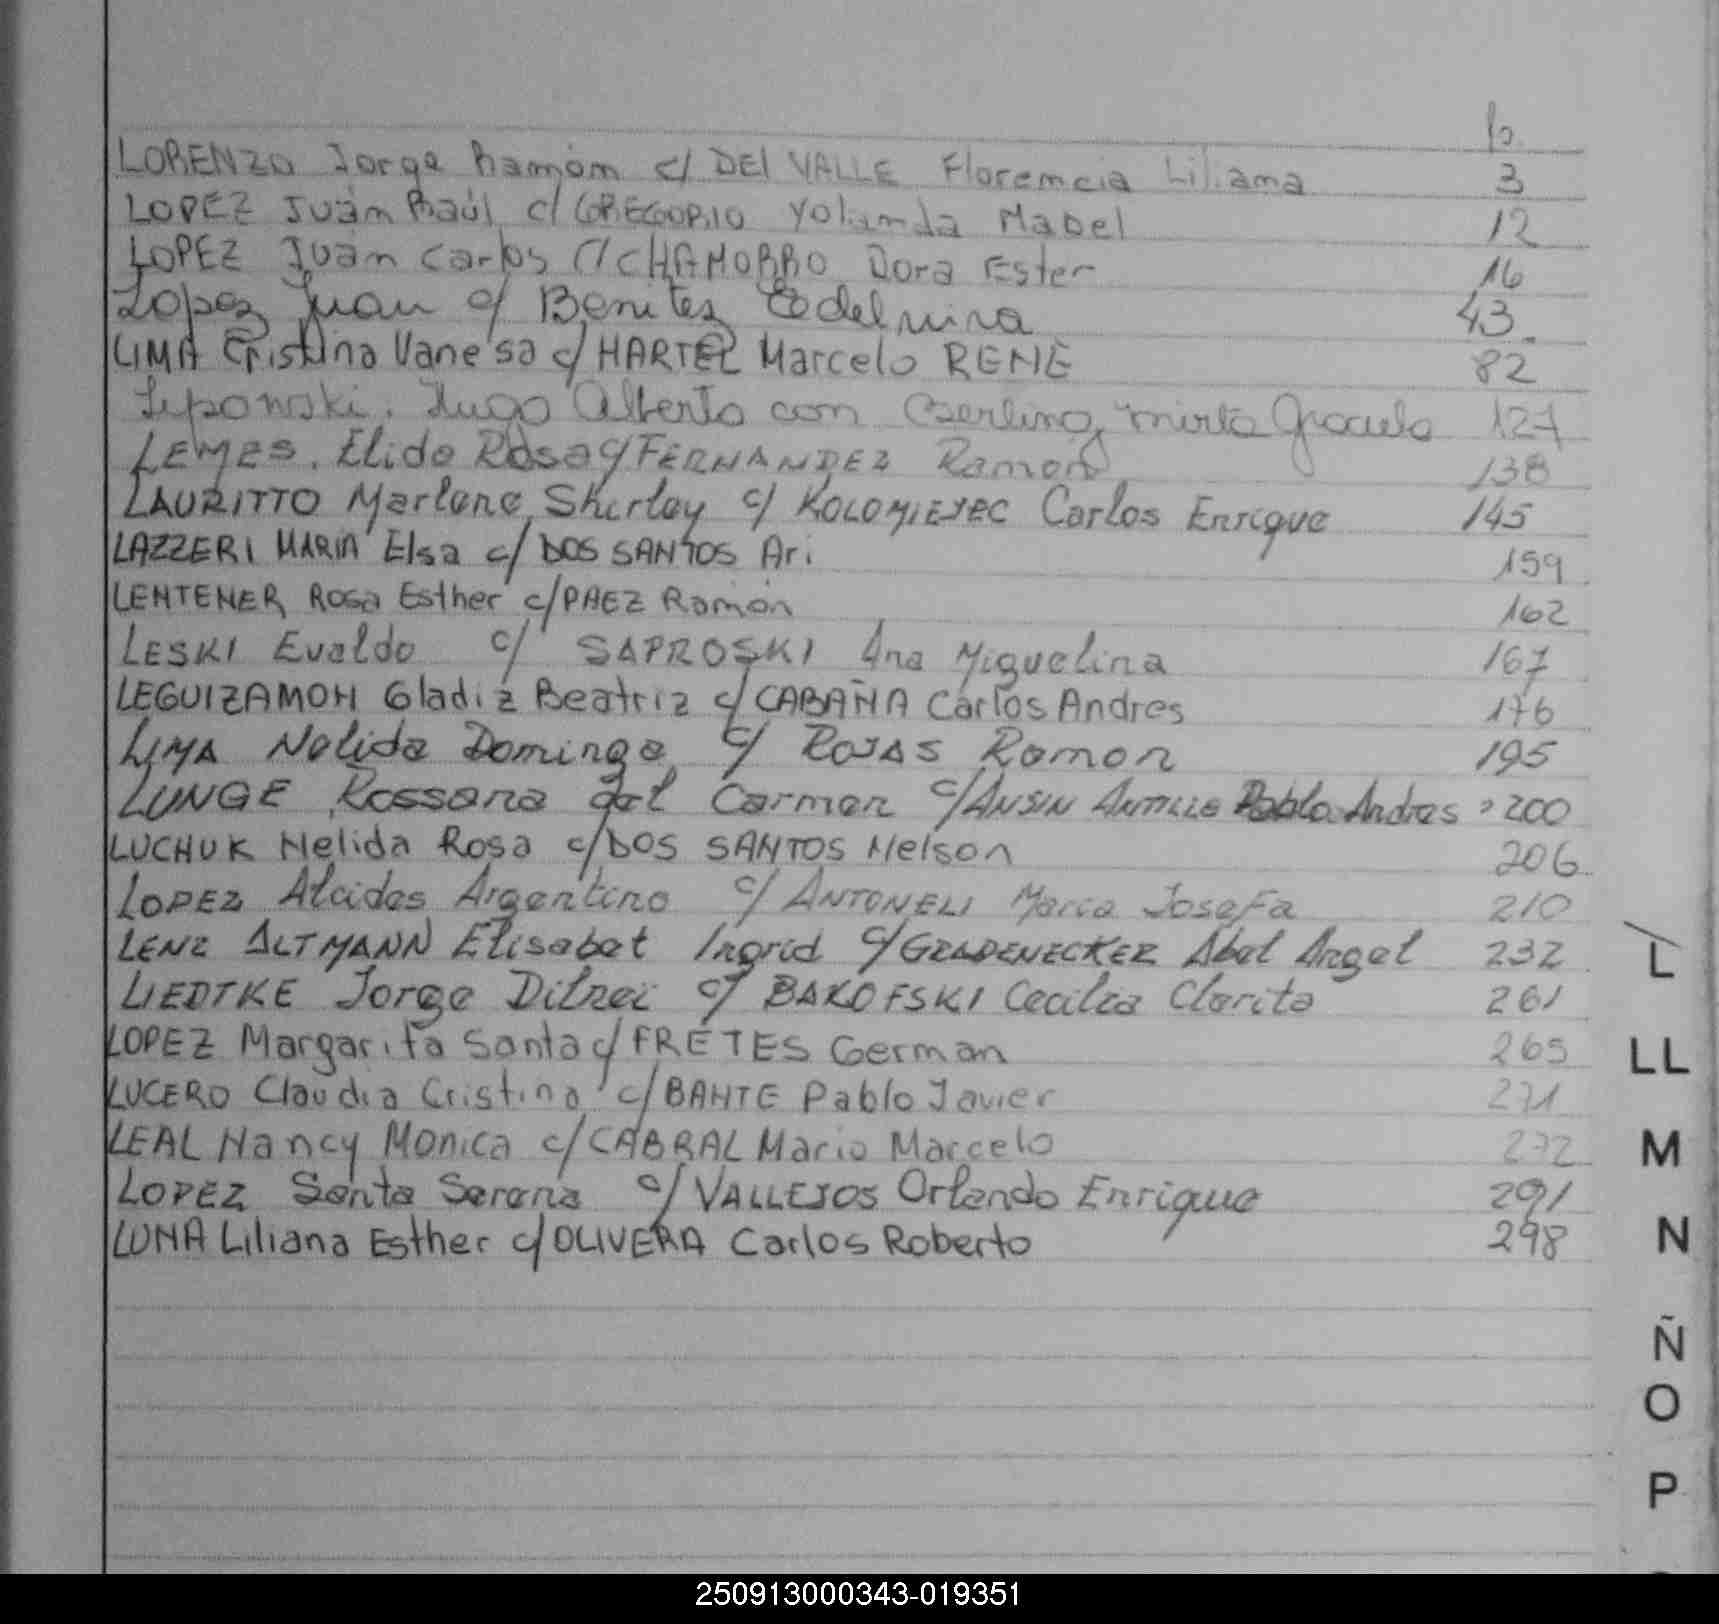 fo.
LORENZO Jorge Ramón c/ DEl VALLE Florencia Liliana 3
LOPEZ Juán Raúl c/ GREGORIO Yolanda Mabel 12
LOPEZ Juán Carlos C/ CHAMORRO Dora Ester 16
Lopez Juan c/ Benitez Edelmira 43
LIMA Cristina Vanesa c/ HARTEL Marcelo RENE 82
Hugo Alberto con Mirta Graciela 127
LEMES, Elida Rosa c/ FERNANDEZ Ramon 138
LAURITTO Marlene Shirley c/ KOLOMIEJEC Carlos Enrique 145
LAZZERI MARIA Elsa c/ DOS SANTOS Ari 159
LENTENER Rosa Esther c/ PAEZ Ramón 162
LESKI Evaldo c/ SAPROSKI Ana Miguelina 167
LEGUIZAMON Gladiz Beatriz c/ CABAÑA Carlos Andres 176
LIMA Nelida Dominga c/ ROJAS Ramon 195
LUNGE Rossana del Carmen c/ ANSIN ANTILLE Pablo Andres 200
LUCHUK Nelida Rosa c/ DOS SANTOS Nelson 206
LOPEZ Alcides Argentino c/ ANTONELI Maria Josefa 210
LENZ ALTMANN Elisabet Ingrid c/ GRADENECKER Abel Angel 232
LIEDTKE Jorge Dilnei c/ BAKOFSKI Cecilia Clarita 261
LOPEZ Margarita Santa c/ FRETES German 265
LUCERO Claudia Cristina c/ BANTE Pablo Javier 271
LEAL Nancy Monica c/ CABRAL Mario Marcelo 272
LOPEZ Santa Serena c/ VALLEJOS Orlando Enrique 291
LUNA Liliana Esther c/ OLIVERA Carlos Roberto 298
L
LL
M
N
Ñ
O
P
250913000343-019351